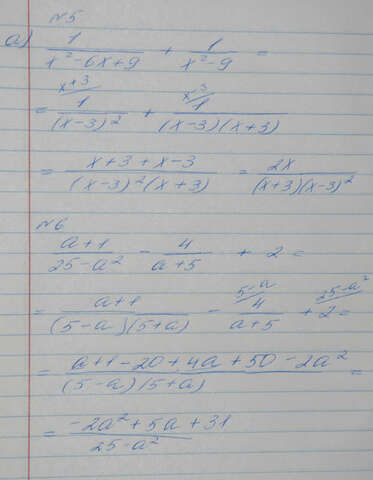 №5
а) 1/(x²-6x+9) + 1/(x²-9) =
= (x+3) 1/(x-3)² + (x-3) 1/((x-3)(x+3))
= (x+3+x-3)/((x-3)²(x+3)) = 2x/((x+3)(x-3)²)
№6
(a+1)/(25-a²) - 4/(a+5) + 2 =
= (a+1)/((5-a)(5+a)) - (5-a) 4/(a+5) + (25-a²) 2 =
= (a+1-20+4a+50-2a²)/((5-a)(5+a)) =
= (-2a²+5a+31)/(25-a²)